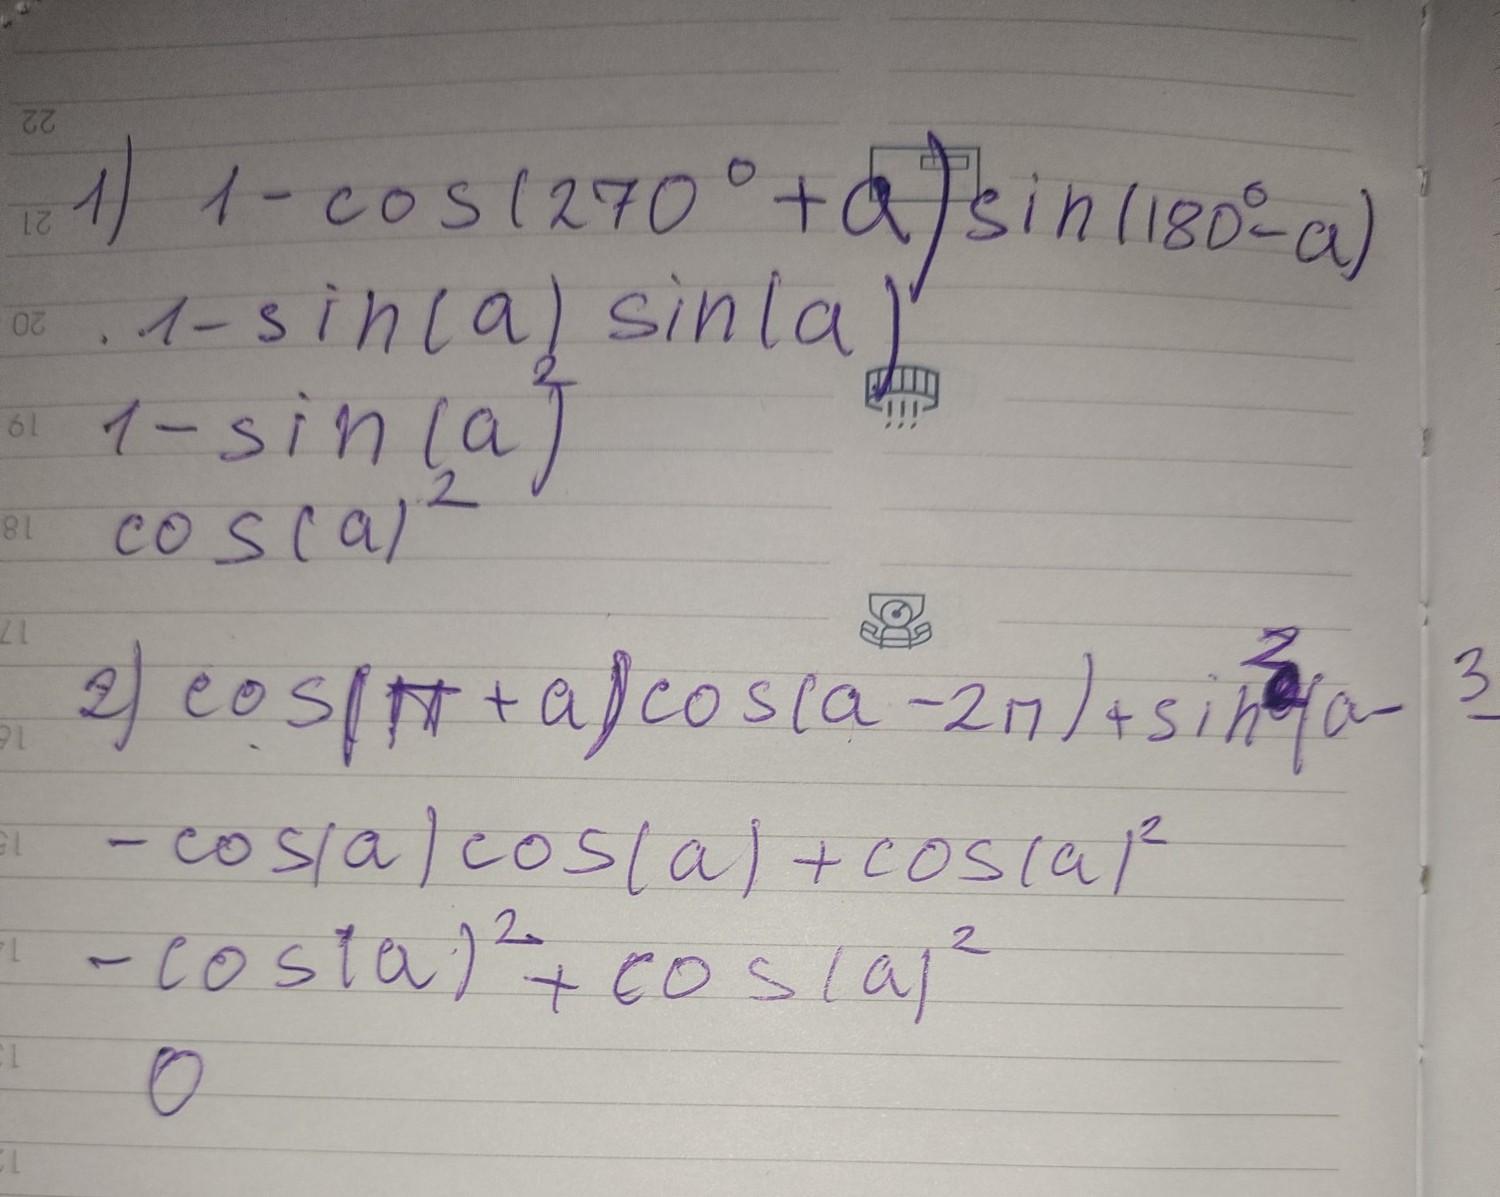 22
21
1) 1-cos(270°+a)sin(180°-a)
20
1-sin(a) sin(a)
19
1-sin(a)²
18
cos(a)²
17
2) cos(π+a)cos(a-2π)+sin²(a- 3
16
15
-cos(a)cos(a)+cos(a)²
14
-cos(a)²+cos(a)²
13
0
12